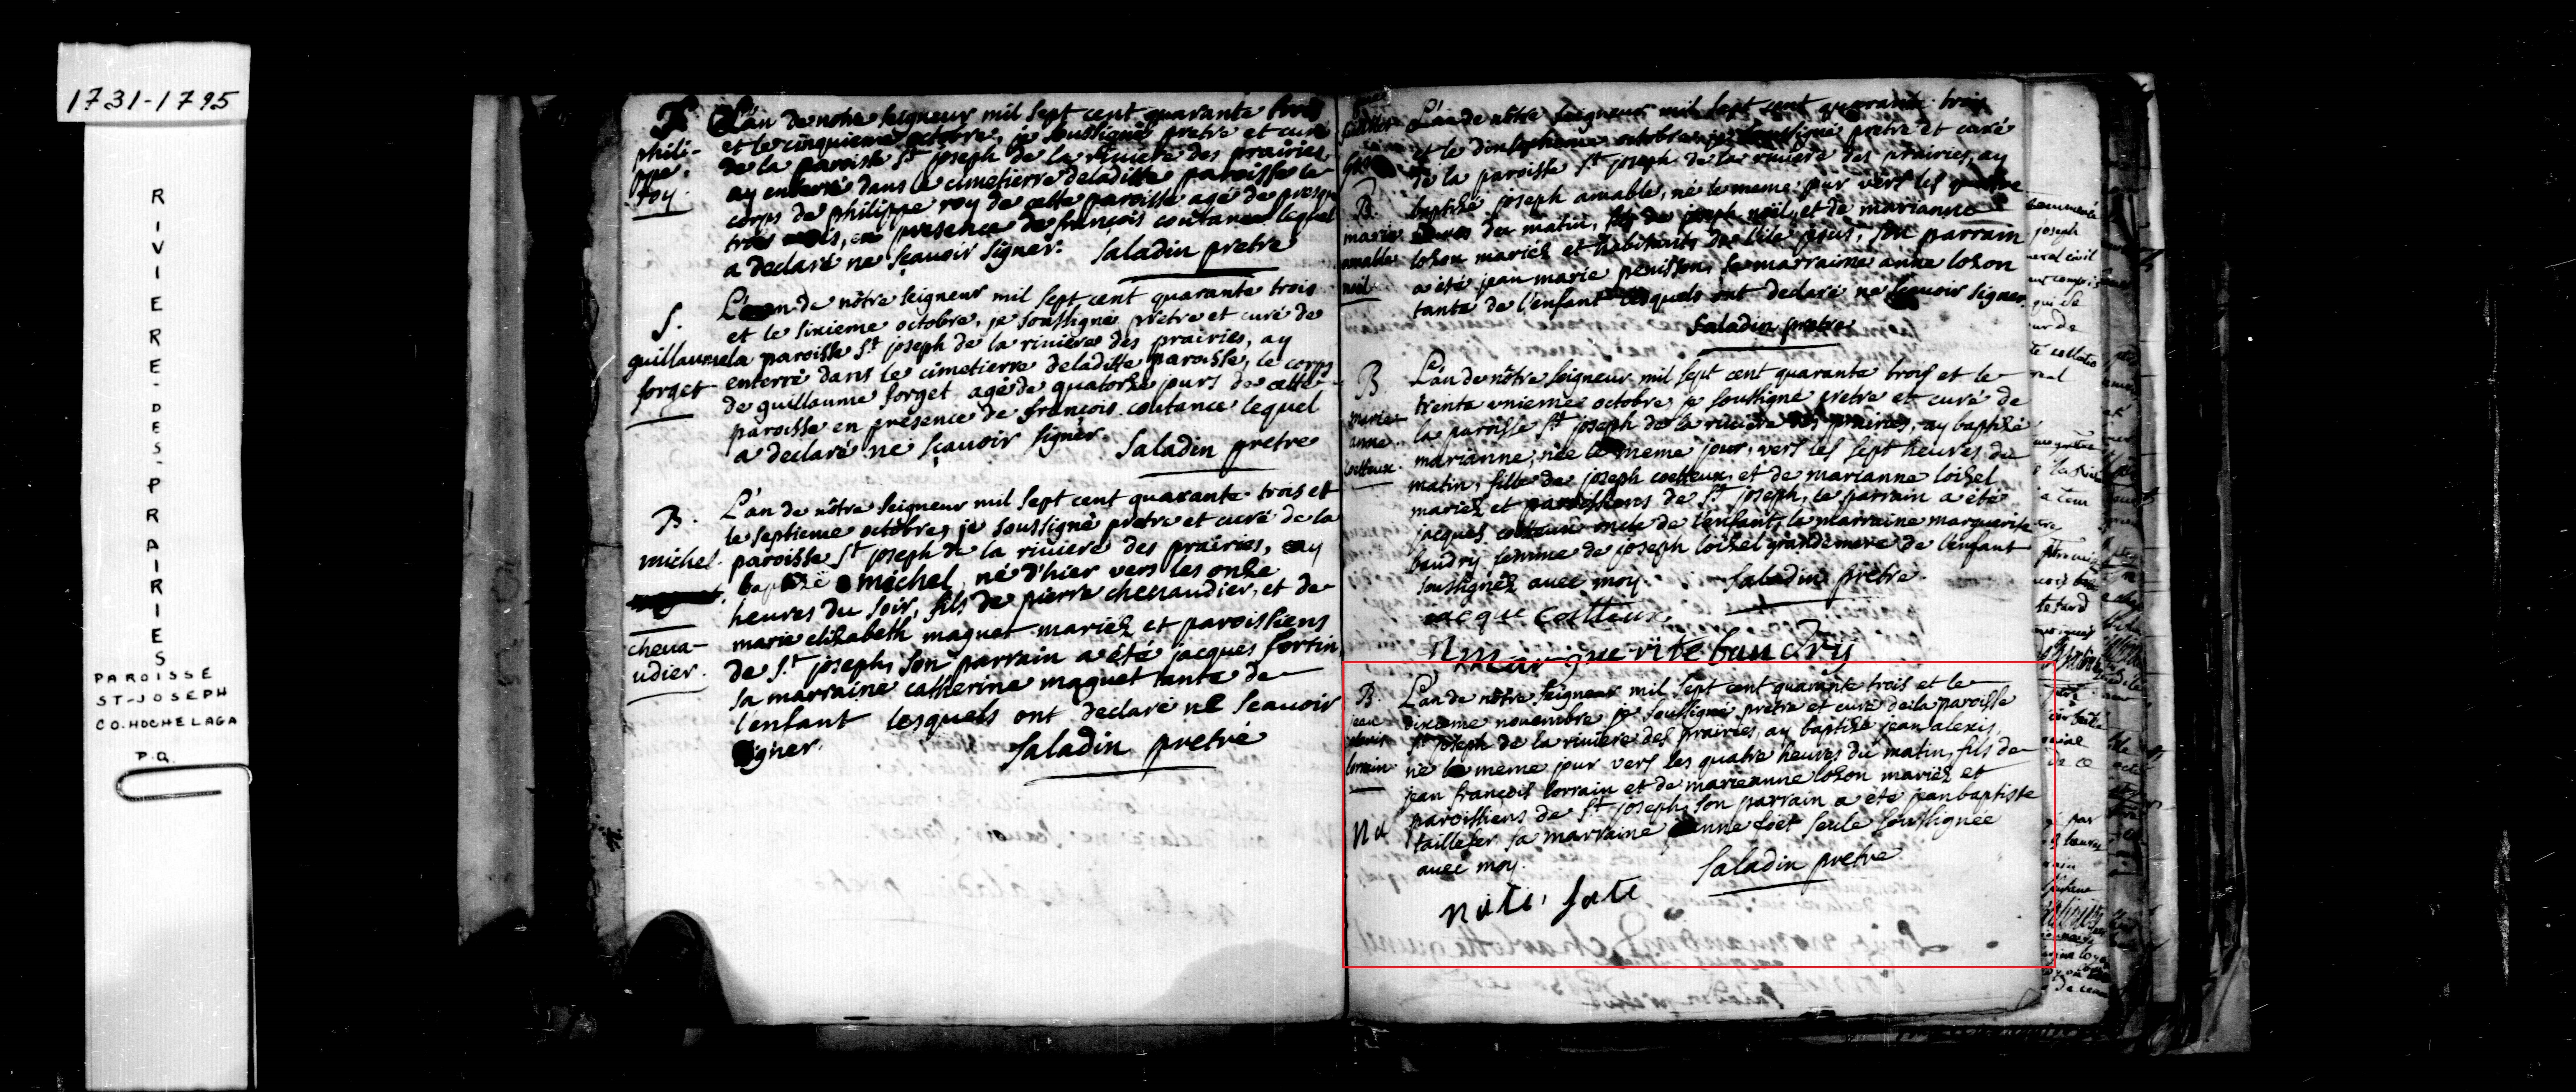 1731-1795
RIVIERE-DES-PRAIRIES
PAROISSE
ST-JOSEPH
CO. HOCHELAGA
P.Q.
phili-
ppe
roy.
L'an de notre seigneur mil sept cent quarante trois
et le cinquieme octobre, je soussigné pretre et curé
de la paroisse St joseph de la riviere des prairies,
ay enterré dans le cimetierre de laditte paroisse le
corps de philippe roy de cette paroisse agé de presque
trois mois, en presence de françois coutance lequel
a declaré ne sçavoir signer. Saladin pretre
S.
guillaume
forget
L'an de nôtre seigneur mil sept cent quarante trois
et le sixieme octobre, je soussigné pretre et curé de
la paroisse St joseph de la riviere des prairies, ay
enterré dans le cimetierre de laditte paroisse, le corps
de guillaume forget agé de quatorze jours de cette
paroisse en presence de françois coutance lequel
a declaré ne sçavoir signer. Saladin pretre
B.
michel
cheua-
udier.
L'an de nôtre seigneur mil sept cent quarante trois et
le septieme octobre, je soussigné pretre et curé de la
paroisse St joseph de la riviere des prairies, ay
baptizé michel, né d'hier vers les onze
heures du soir, fils de pierre cheuaudier, et de
marie elizabeth maguet mariez et paroissiens
de St joseph, son parrain a été jacques fortin,
sa marraine catherine maguet tante de
l'enfant lesquels ont declaré ne scauoir
signer. Saladin pretre
B.
marie
amable
noil
L'an de nôtre seigneur mil sept cent quarante trois
et le octobre, je soussigné pretre et curé
de la paroisse St joseph de la riviere des prairies, ay
baptizé joseph amable, né le meme jour vers les quatre
heures du matin, fils de joseph noël, et de marianne
lozon mariez et habitants de l'ile jesus, son parrain
a été jean marie penisson, sa marraine anne lozon
tante de l'enfant lesquels ont declaré ne sçauoir signer.
Saladin pretre
B
marie
anne
cotteux.
L'an de nôtre seigneur mil sept cent quarante trois et le
trente unieme octobre je soussigné pretre et curé de
la paroisse St joseph de la riviere des prairies, ay baptizé
marianne, née le meme jour, vers les sept heures du
matin, fille de joseph cotteux, et de marianne loizel
mariez et paroissiens de St joseph, le parrain a été
jacques cotteux oncle de l'enfant, la marraine marguerite
baudry femme de joseph loizel grandemere de l'enfant
soussignez avec moy. Saladin pretre.
jacque cotteux
marguerite baudry
B.
jean
alexis
lorrain
L'an de nôtre seigneur mil sept cent quarante trois et le
dixieme novembre je soussigné pretre et curé de la paroisse
St joseph de la riviere des prairies, ay baptizé jean alexis,
né le meme jour vers les quatre heures du matin, fils de
jean françois lorrain et de marieanne lozon mariez et
paroissiens de St joseph, son parrain a été jean baptiste
taillefer sa marraine anne foët seule soussignée
avec moy. Saladin pretre